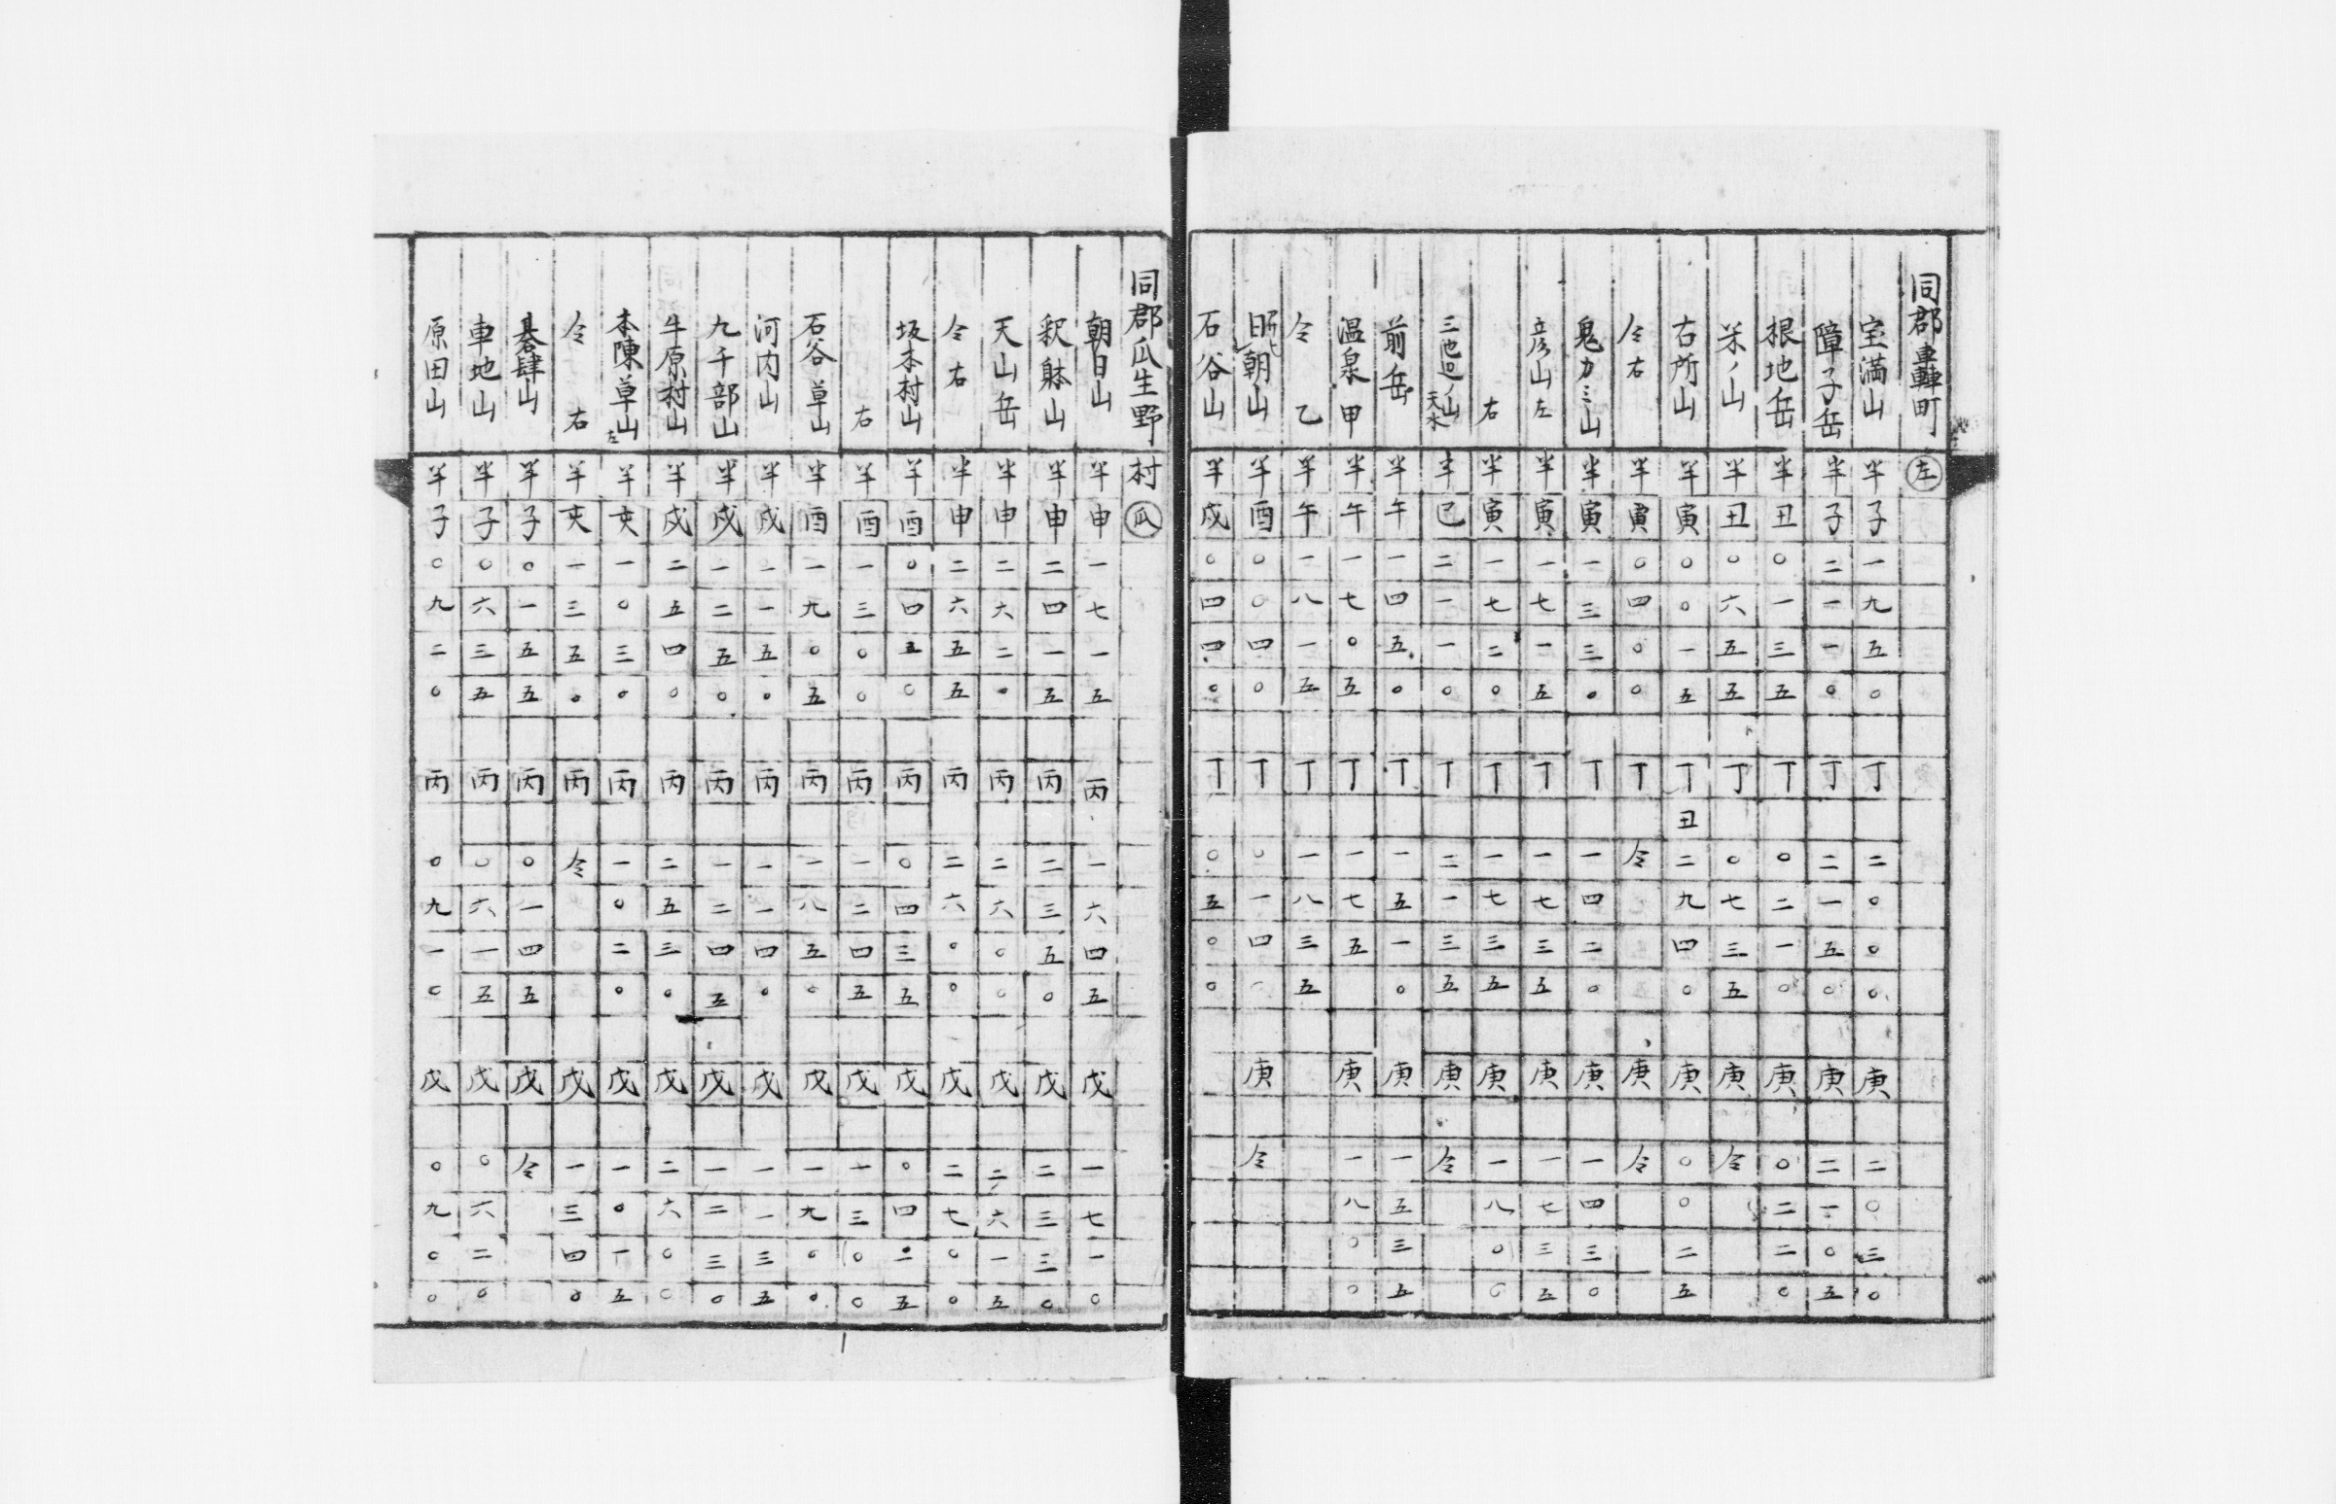 同郡轟町 左
宝満山 半子一九五〇 丁 二〇〇〇 庚 二〇三〇
障子岳 半子二一一〇 丁 二一五〇 庚 二一〇五
根地岳 半丑〇一三五 丁 〇二一〇 庚 〇二二〇
米ノ山 半丑〇六五五 丁 〇七三五 庚 仝
右所山 半寅〇〇一五 丁丑二九四〇 庚 〇〇二五
仝右 半寅〇四〇〇 丁 仝 庚 仝
鬼カミ山 半寅一三三〇 丁 一四二〇 庚 一四三〇
彦山左 半寅一七一五 丁 一七三五 庚 一七三五
右 半寅一七二〇 丁 一七三五 庚 一八〇〇
半巳二一一〇 丁 二一三五 庚 仝
前岳 半午一四五〇 丁 一五一〇 庚 一五三五
温泉甲 半午一七〇五 丁 一七五 庚 一八〇〇
仝乙 半午一八一五 丁 一八三五
朝山 半酉〇〇四〇 丁 〇一四〇 庚 仝
石谷山 半戌〇四四〇 丁 〇五〇〇
同郡瓜生野村 瓜
朝日山 半申一七一五 丙 一六四五 戊 一七一〇
釈躰山 半申二四一五 丙 二三五〇 戊 二三三〇
天山岳 半申二六二〇 丙 二六〇〇 戊 二六一五
仝右 半申二六五五 丙 二六〇〇 戊 二七〇〇
坂本村山 半酉〇四五〇 丙 〇四三五 戊 〇四二五
右 半酉一三〇〇 丙 一二四五 戊 一三〇〇
石谷草山 半酉一九〇五 丙 一八五〇 戊 一九〇〇
河内山 半戌一一五〇 丙 一一四〇 戊 一一三五
九千部山 半戌一二五〇 丙 一二四五 戊 一二三〇
牛原村山 半戌二五四〇 丙 二五三〇 戊 二六〇〇
本陳草山左 半亥一〇三〇 丙 一〇二〇 戊 一〇一五
仝右 半亥一三五〇 丙 仝 戊 一三四〇
碁肆山 半子〇一五五 丙 〇一四五 戊 仝
車地山 半子〇六三五 丙 〇六一五 戊 〇六二〇
原田山 半子〇九二〇 丙 〇九一〇 戊 〇九〇〇